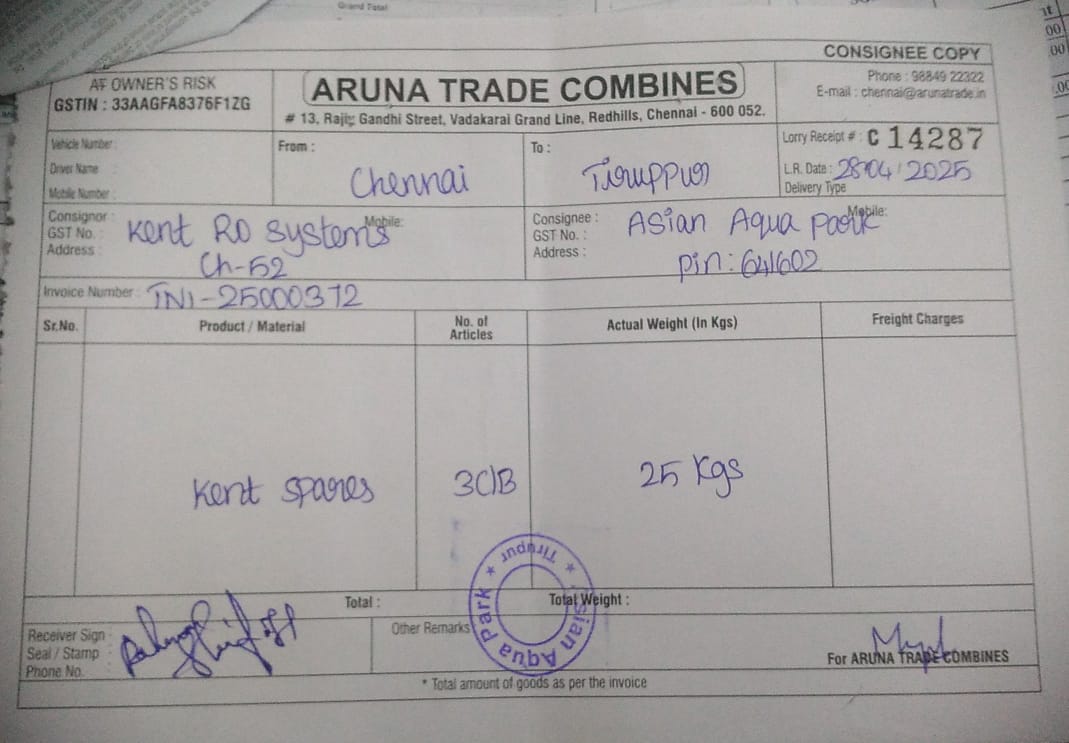 Grand Total
CONSIGNEE COPY
AT OWNER'S RISK
GSTIN : 33AAGFA8376F1ZG
ARUNA TRADE COMBINES
# 13, Rajiv Gandhi Street, Vadakarai Grand Line, Redhills, Chennai - 600 052.
Phone : 98849 22322
E-mail : chennai@arunatrade.in
Vehicle Number :
Driver Name :
Mobile Number :
From :
Chennai
To :
Tiruppur
Lorry Receipt # : C 14287
L.R. Date : 28/04/2025
Delivery Type
Consignor : Kent RO Systems Mobile:
GST No. :
Address : Ch-52
Consignee : Asian Aqua Park Mobile:
GST No. :
Address : Pin: 641602
Invoice Number : TN1-25000372
Sr.No. Product / Material No. of Articles Actual Weight (In Kgs) Freight Charges
Kent Spares 3C/B 25 Kgs
Total : Total Weight :
Receiver Sign :
Seal / Stamp :
Phone No. :
Other Remarks
Asian Aqua Park * Tirupur *
For ARUNA TRADE COMBINES
* Total amount of goods as per the invoice